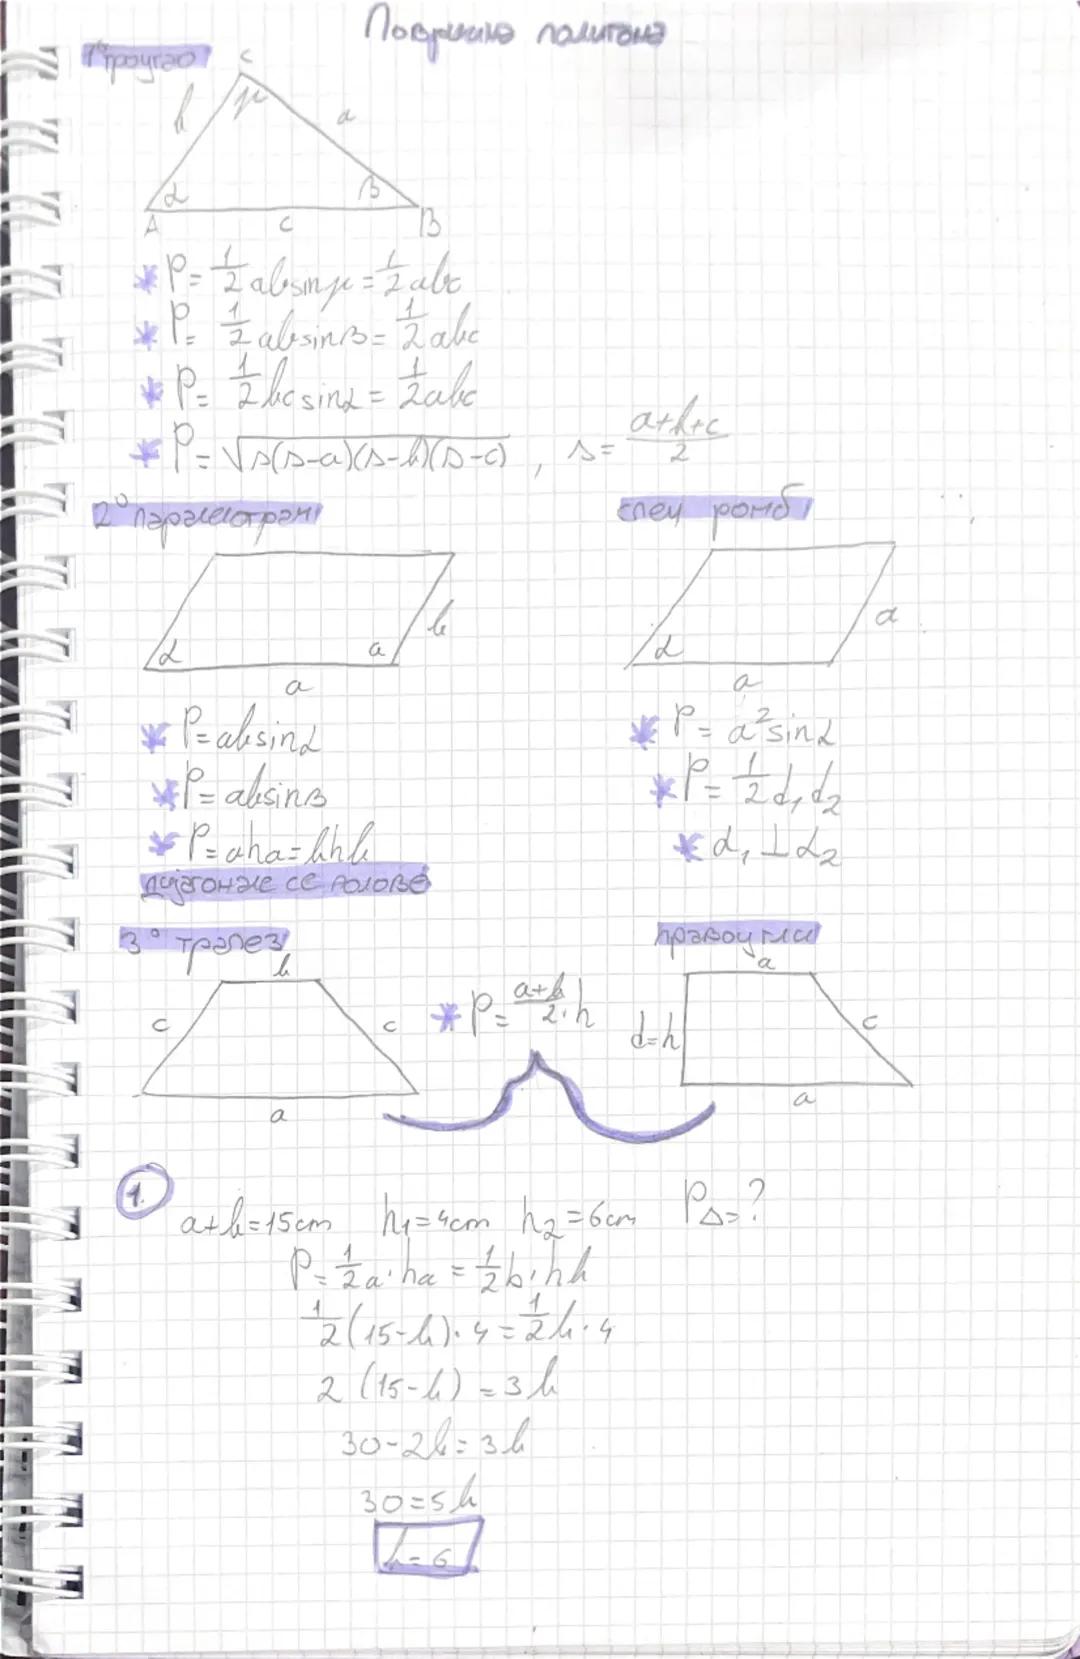 Површина полигона
1° троугао
C
b γ a
α β
A c B
* P = 1/2 ab sin γ = 1/2 abc
* P = 1/2 ab sin β = 1/2 abc
* P = 1/2 bc sin α = 1/2 abc
* P = √s(s-a)(s-b)(s-c) , s = a+b+c/2
2° паралелограм
α a b
a
* P = ab sin α
* P = ab sin β
* P = aha = bhb
дијагонале се полове
спец ромб
α a
a
* P = a² sin α
* P = 1/2 d₁ d₂
* d₁ ⊥ d₂
3° трапез
b
c c
a
* P = a+b/2 · h
правоугли
a
d=h c
a
1.
a+b=15cm h₁=4cm h₂=6cm P△=?
P = 1/2 a · ha = 1/2 b · hb
1/2 (15-b) · 4 = 1/2 b · 4
2 (15-b) = 3b
30-2b = 3b
30 = 5b
b = 6